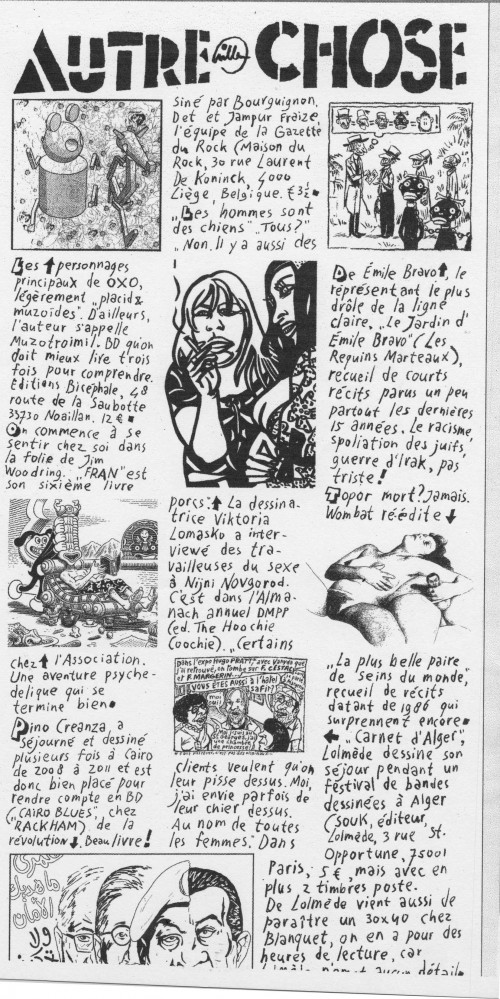 AUTRE CHOSE
Willem
Les ↑ personnages
principaux de OXO,
légèrement „placid &
muzoïdes". D'ailleurs,
l'auteur s'appelle
Muzotroimil. BD qu'on
doit mieux lire trois
fois pour comprendre.
Éditions Bicéphale, 48
route de la Saubotte
35730 Noaillan. 12 €.
On commence à se
sentir chez soi dans
la folie de Jim
Woodring. „FRAN" est
son sixième livre
chez ↑ l'Association.
Une aventure psyche-
delique qui se
termine bien.
Pino Creanza, a
séjourné et dessiné
plusieurs fois à Cairo
de 2008 à 2011 et est
donc bien placé pour
rendre compte en BD
(„CAIRO BLUES", chez
„RACKHAM") de la
révolution ↓. Beau livre!
Siné par Bourguignon,
Det et Jampur Fraize,
l'équipe de la Gazette
du Rock (Maison du
Rock, 30 rue Laurent
De Koninck, 4000
Liège, Belgique. € 3½.
„Les hommes sont
des chiens". „Tous?"
„Non. Il y a aussi des
porcs: ↑ La dessina-
trice Viktoria
Lomasko a inter-
viewé des tra-
vailleuses du sexe
à Nijni Novgorod.
C'est dans l'Alma-
nach annuel DMPP
(ed. The Hoochie
Coochie). „Certains
Dans l'expo Hugo PRATT, avec Vanves que
j'ai retrouvé, on tombe sur F. CESTAC
et F. MARGERIN
VOUS ÊTES AUSSI à l'hôtel
SAFIR?
moi
oui!
clients veulent qu'on
leur pisse dessus. Moi,
j'ai envie parfois de
leur chier dessus.
Au nom de toutes
les femmes." Dans
De Émile Bravo ↑, le
représentant le plus
drôle de la ligne
claire. „Le Jardin d'
Emile Bravo" (Les
Requins Marteaux),
recueil de courts
récits parus un peu
partout les dernières
15 années. Le racisme,
spoliation des juifs,
guerre d'Irak, pas
triste!
Topor mort? Jamais.
Wombat réédite ↓
„La plus belle paire
de seins du monde",
recueil de récits
datant de 1986 qui
surprennent encore.
← „Carnet d'Alger".
Lolmède dessine son
séjour pendant un
festival de bandes
dessinées à Alger
(Souk, éditeur,
Lolmède, 3 rue St.
Opportune, 75001
Paris, 5 €, mais avec en
plus 2 timbres poste.
De Lolmède vient aussi de
paraître un 30x40 chez
Blanquet, on en a pour des
heures de lecture, car